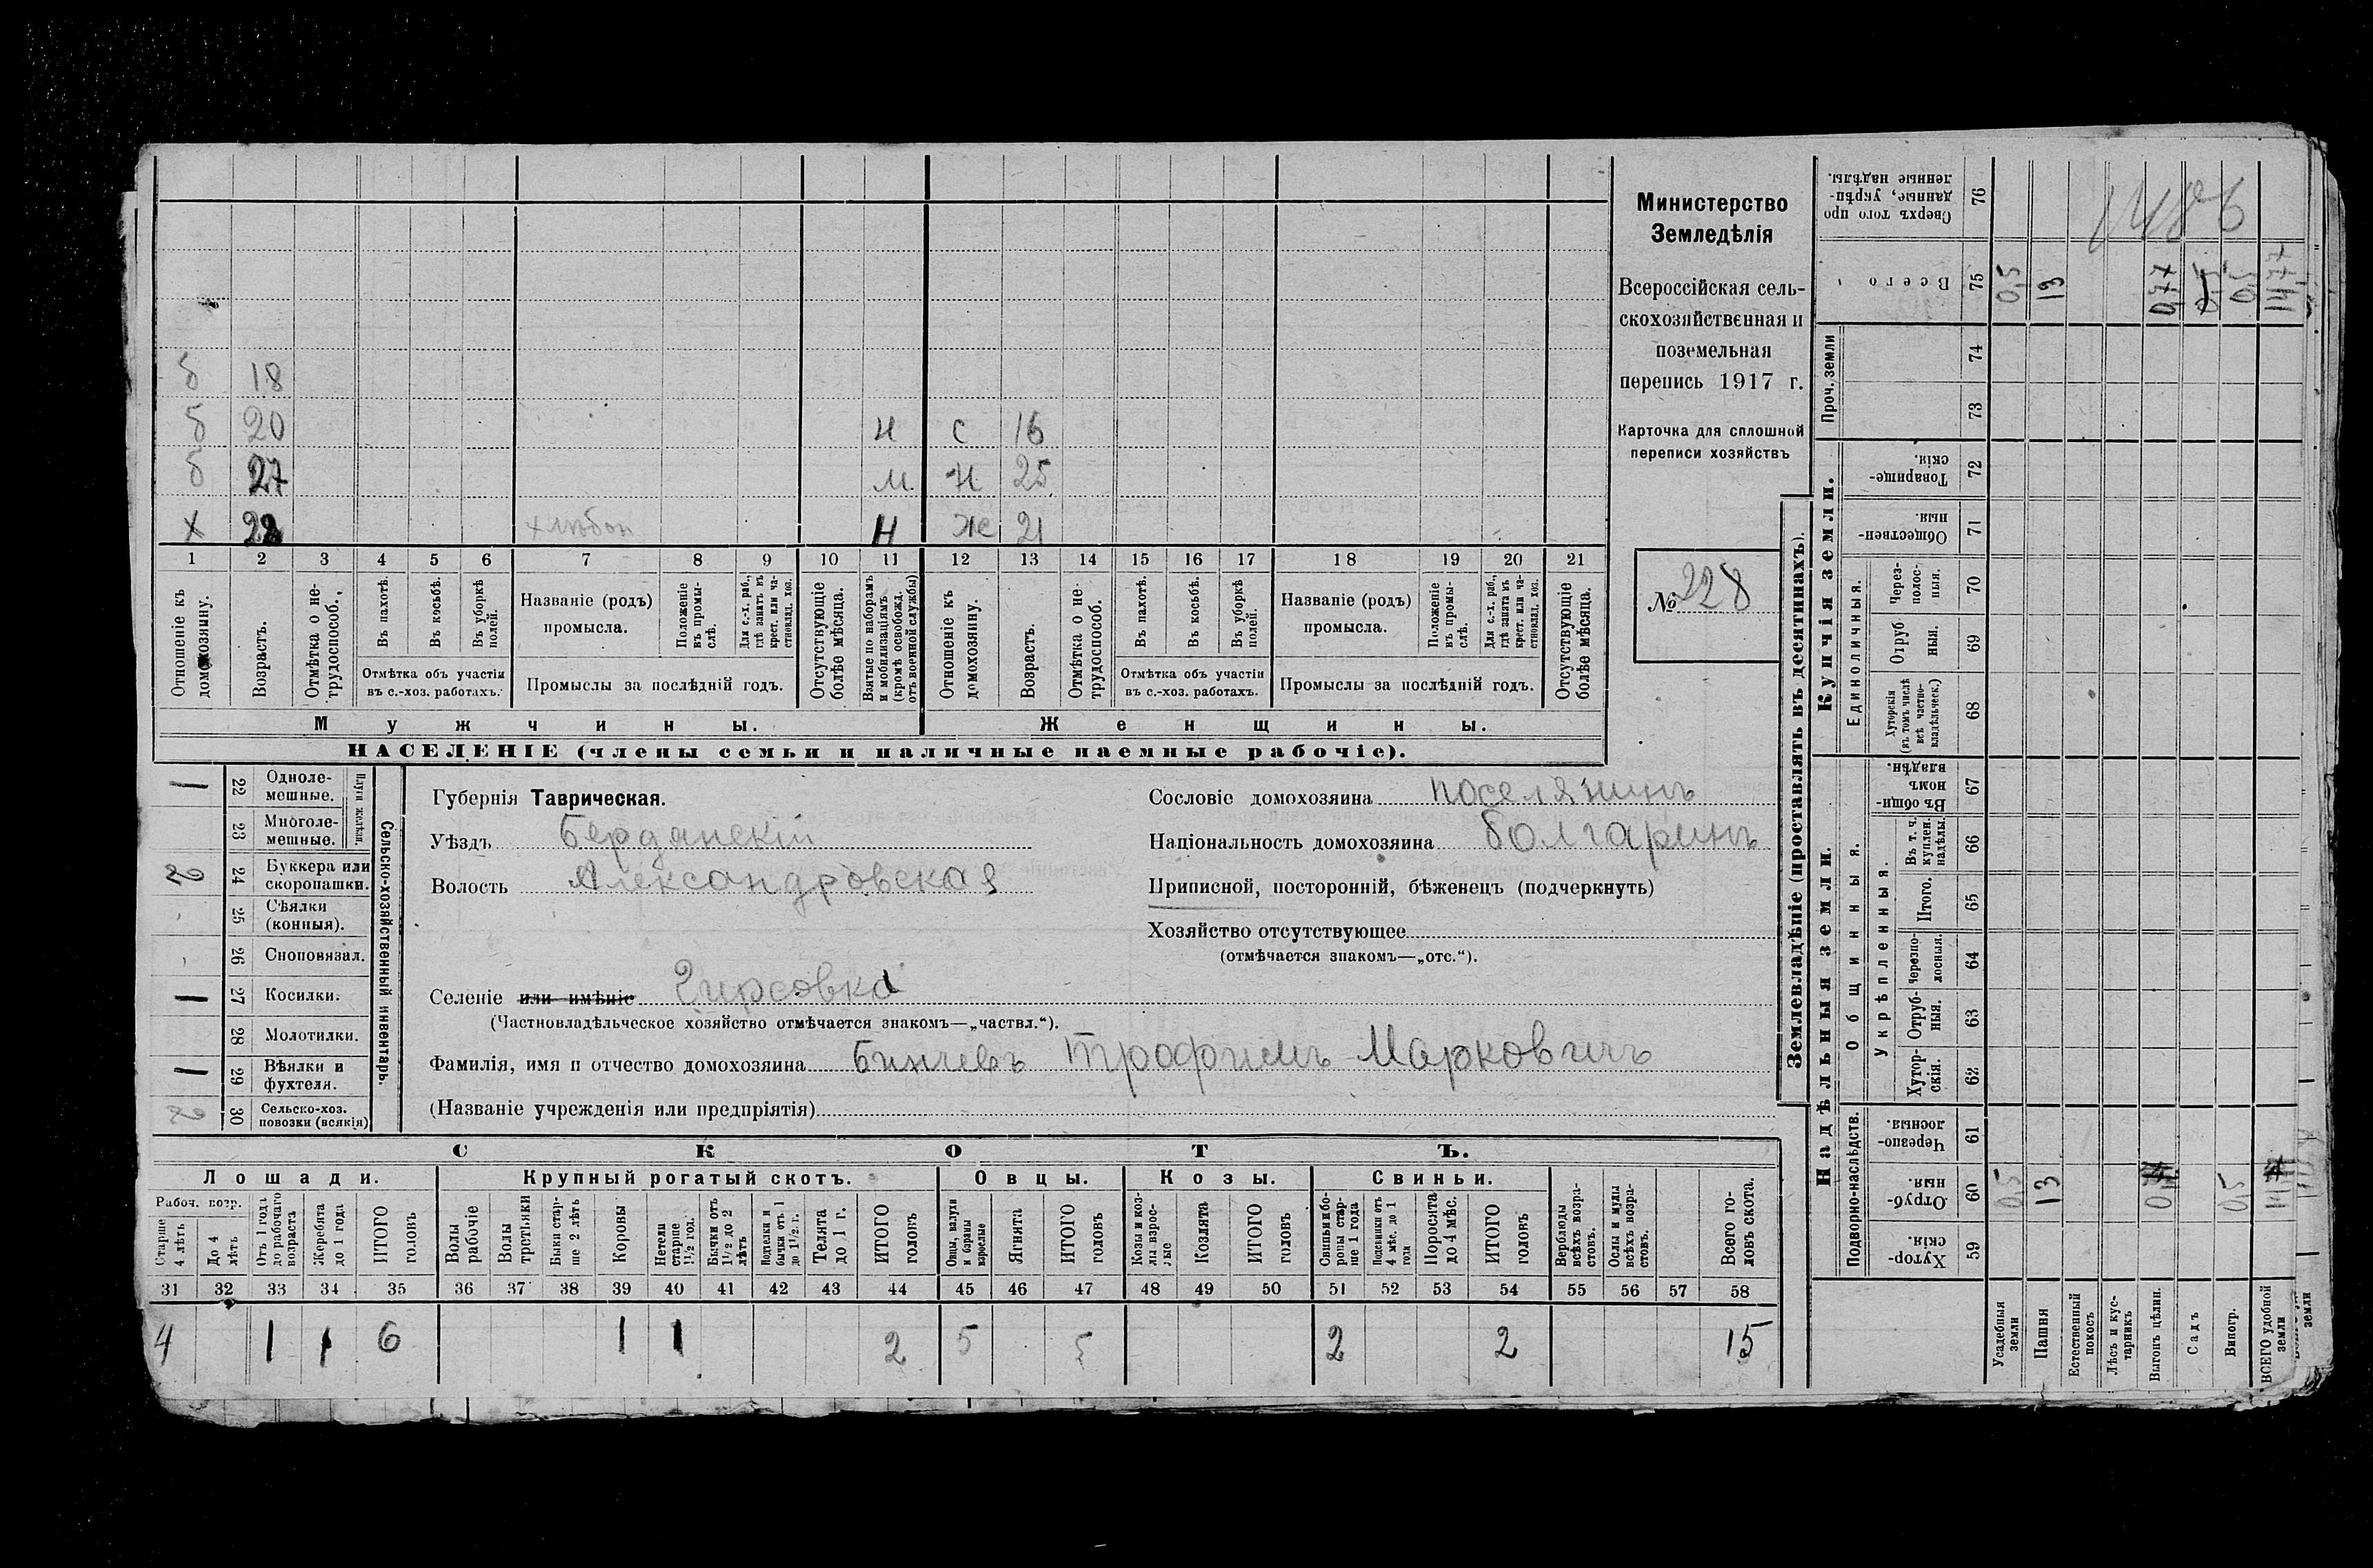 б 18
б 20 н с 16
б 27 м н 25
х 28 хлѣбоп н же 21
1 2 3 4 5 6 7 8 9 10 11 12 13 14 15 16 17 18 19 20 21
Отношеніе къ домохозяину.
Возрастъ.
Отмѣтка о не-
трудоспособ.
Въ пахотѣ.
Въ косьбѣ.
Въ уборкѣ полей.
Отмѣтка объ участіи
въ с.-хоз. работахъ.
Названіе (родъ)
промысла.
Положеніе въ промы-
слѣ.
Для с.-х. раб., гдѣ занятъ въ крест. или ча-
стновлад. хоз.
Промыслы за послѣдній годъ.
Отсутствующіе болѣе мѣсяца.
Взятые по наборамъ и мобилизаціямъ (кромѣ освобожд. отъ военной службы)
Отношеніе къ домохозяину.
Возрастъ.
Отмѣтка о не-
трудоспособ.
Въ пахотѣ.
Въ косьбѣ.
Въ уборкѣ полей.
Отмѣтка объ участіи
въ с.-хоз. работахъ.
Названіе (родъ)
промысла.
Положеніе въ промы-
слѣ.
Для с.-х. раб., гдѣ занята въ крест. или ча-
стновлад. хоз.
Промыслы за послѣдній годъ.
Отсутствующіе болѣе мѣсяца.
Мужчины. Женщины.
НАСЕЛЕНІЕ (члены семьи и наличные наемные рабочіе).
Министерство
Земледѣлія
Всероссійская сель-
скохозяйственная и
поземельная
перепись 1917 г.
Карточка для сплошной
переписи хозяйствъ
№ 228
Сельско-хозяйственный инвентарь.
Плуги желѣзн.
1 22 Одноле-
мешные.
23 Многоле-
мешные.
2 24 Буккера или
скоропашки.
25 Сѣялки
(конныя).
26 Сноповязал.
1 27 Косилки.
28 Молотилки.
1 29 Вѣялки и
фухтеля.
2 30 Сельско-хоз.
повозки (всякія)
Губернія Таврическая.
Уѣздъ Бердянскій
Волость Александровская
Сословіе домохозяина поселянинъ
Національность домохозяина болгаринъ
Приписной, посторонній, бѣженецъ (подчеркнуть)
Хозяйство отсутствующее
(отмѣчается знакомъ—„отс.“).
Селеніе или имѣніе Гирсовка
(Частновладѣльческое хозяйство отмѣчается знакомъ—„частвл.“).
Фамилія, имя и отчество домохозяина Бинчевъ Трофимъ Марковичъ
(Названіе учрежденія или предпріятія)
СКОТЪ.
Лошади. Крупный рогатый скотъ. Овцы. Козы. Свиньи.
Рабоч. возр.
Старше 4 лѣтъ
До 4 лѣтъ
Отъ 1 года до рабочаго возраста
Жеребята до 1 года
ИТОГО головъ
Волы рабочіе
Волы третьяки
Быки стар-
ше 2 лѣтъ
Коровы
Нетели старше 1½ год.
Бычки отъ 1½ до 2 лѣтъ
Подтелки и бычки отъ 1 до 1½ г.
Телята до 1 г.
ИТОГО головъ
Овцы, валухи и бараны взрослые
Ягнята
ИТОГО головъ
Козы и коз-
лы взрос-
лые
Козлята
ИТОГО головъ
Свиньи и бо-
ровы стар-
ше 1 года
Подсвинки отъ 4 мѣс. до 1 года
Поросята до 4 мѣс.
ИТОГО головъ
Верблюды всѣхъ возра-
стовъ.
Ослы и мулы всѣхъ возра-
стовъ.
Всего го-
ловъ скота.
31 32 33 34 35 36 37 38 39 40 41 42 43 44 45 46 47 48 49 50 51 52 53 54 55 56 57 58
4 1 1 6 1 1 2 5 5 2 2 15
Землевладѣніе (проставлять въ десятинахъ).
Купчія земли.
Надѣльныя земли.
Сверхъ того про
данные, укрѣп-
ленные надѣлы.
76
Всего
75 0,5 13 0,77 0,5 14,77
Проч. земли
74
73
Товарище-
скія.
72
Обществен-
ныя.
71
Единоличныя.
Через-
полос-
ныя.
70
Отруб
ныя.
69
Хуторскія
(въ томъ числѣ
всѣ частно-
владѣльческ.)
68
Общинныя.
Въ общи-
номъ
владѣн.
67
Укрѣпленныя.
Въ т. ч.
куплен.
надѣлы.
66
Итого.
65
Черезпо-
лосныя.
64
Отруб-
ныя.
63
Хутор-
скія.
62
Подворно-наслѣдств.
Черезпо-
лосныя.
61
Отруб-
ныя.
60 0,5 13 0,5
Хутор-
скія.
59
Усадебныя земли
Пашня
Естественный покосъ
Лѣсъ и кус-
тарникъ
Выгонъ цѣлин.
Садъ
Виногр.
ВСЕГО удобной земли
земли